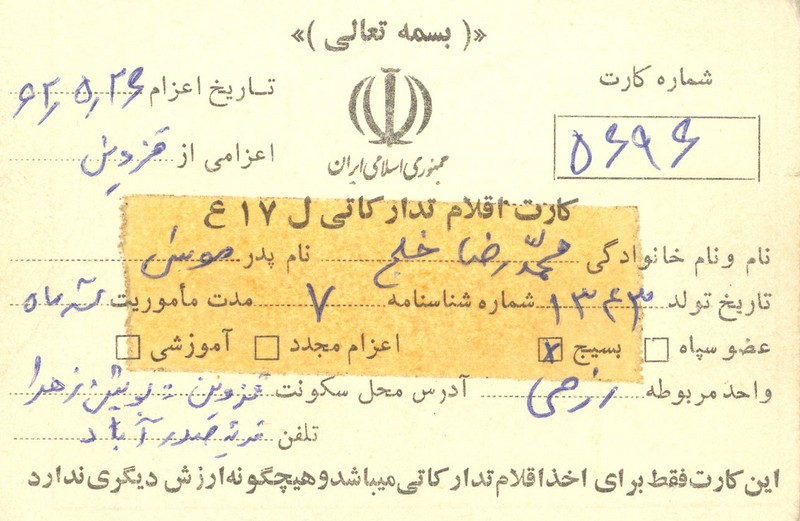 «( بسمه تعالی )»
شماره کارت
۵۶۹۶
تاریخ اعزام ۶۲٫۵٫۲۶
اعزامی از قزوین
جمهوری اسلامی ایران
کارت اقلام تدارکاتی ل ۱۷ ع
نام و نام خانوادگی محمّدرضا خلج نام پدر موسی
تاریخ تولد ۱۳۴۳ شماره شناسنامه ۷ مدت مأموریت سه ماه
عضو سپاه بسیج x اعزام مجدد آموزشی
واحد مربوطه رزمی آدرس محل سکونت قزوین زهرا
تلفن آباد
این کارت فقط برای اخذ اقلام تدارکاتی میباشد و هیچگونه ارزش دیگری ندارد